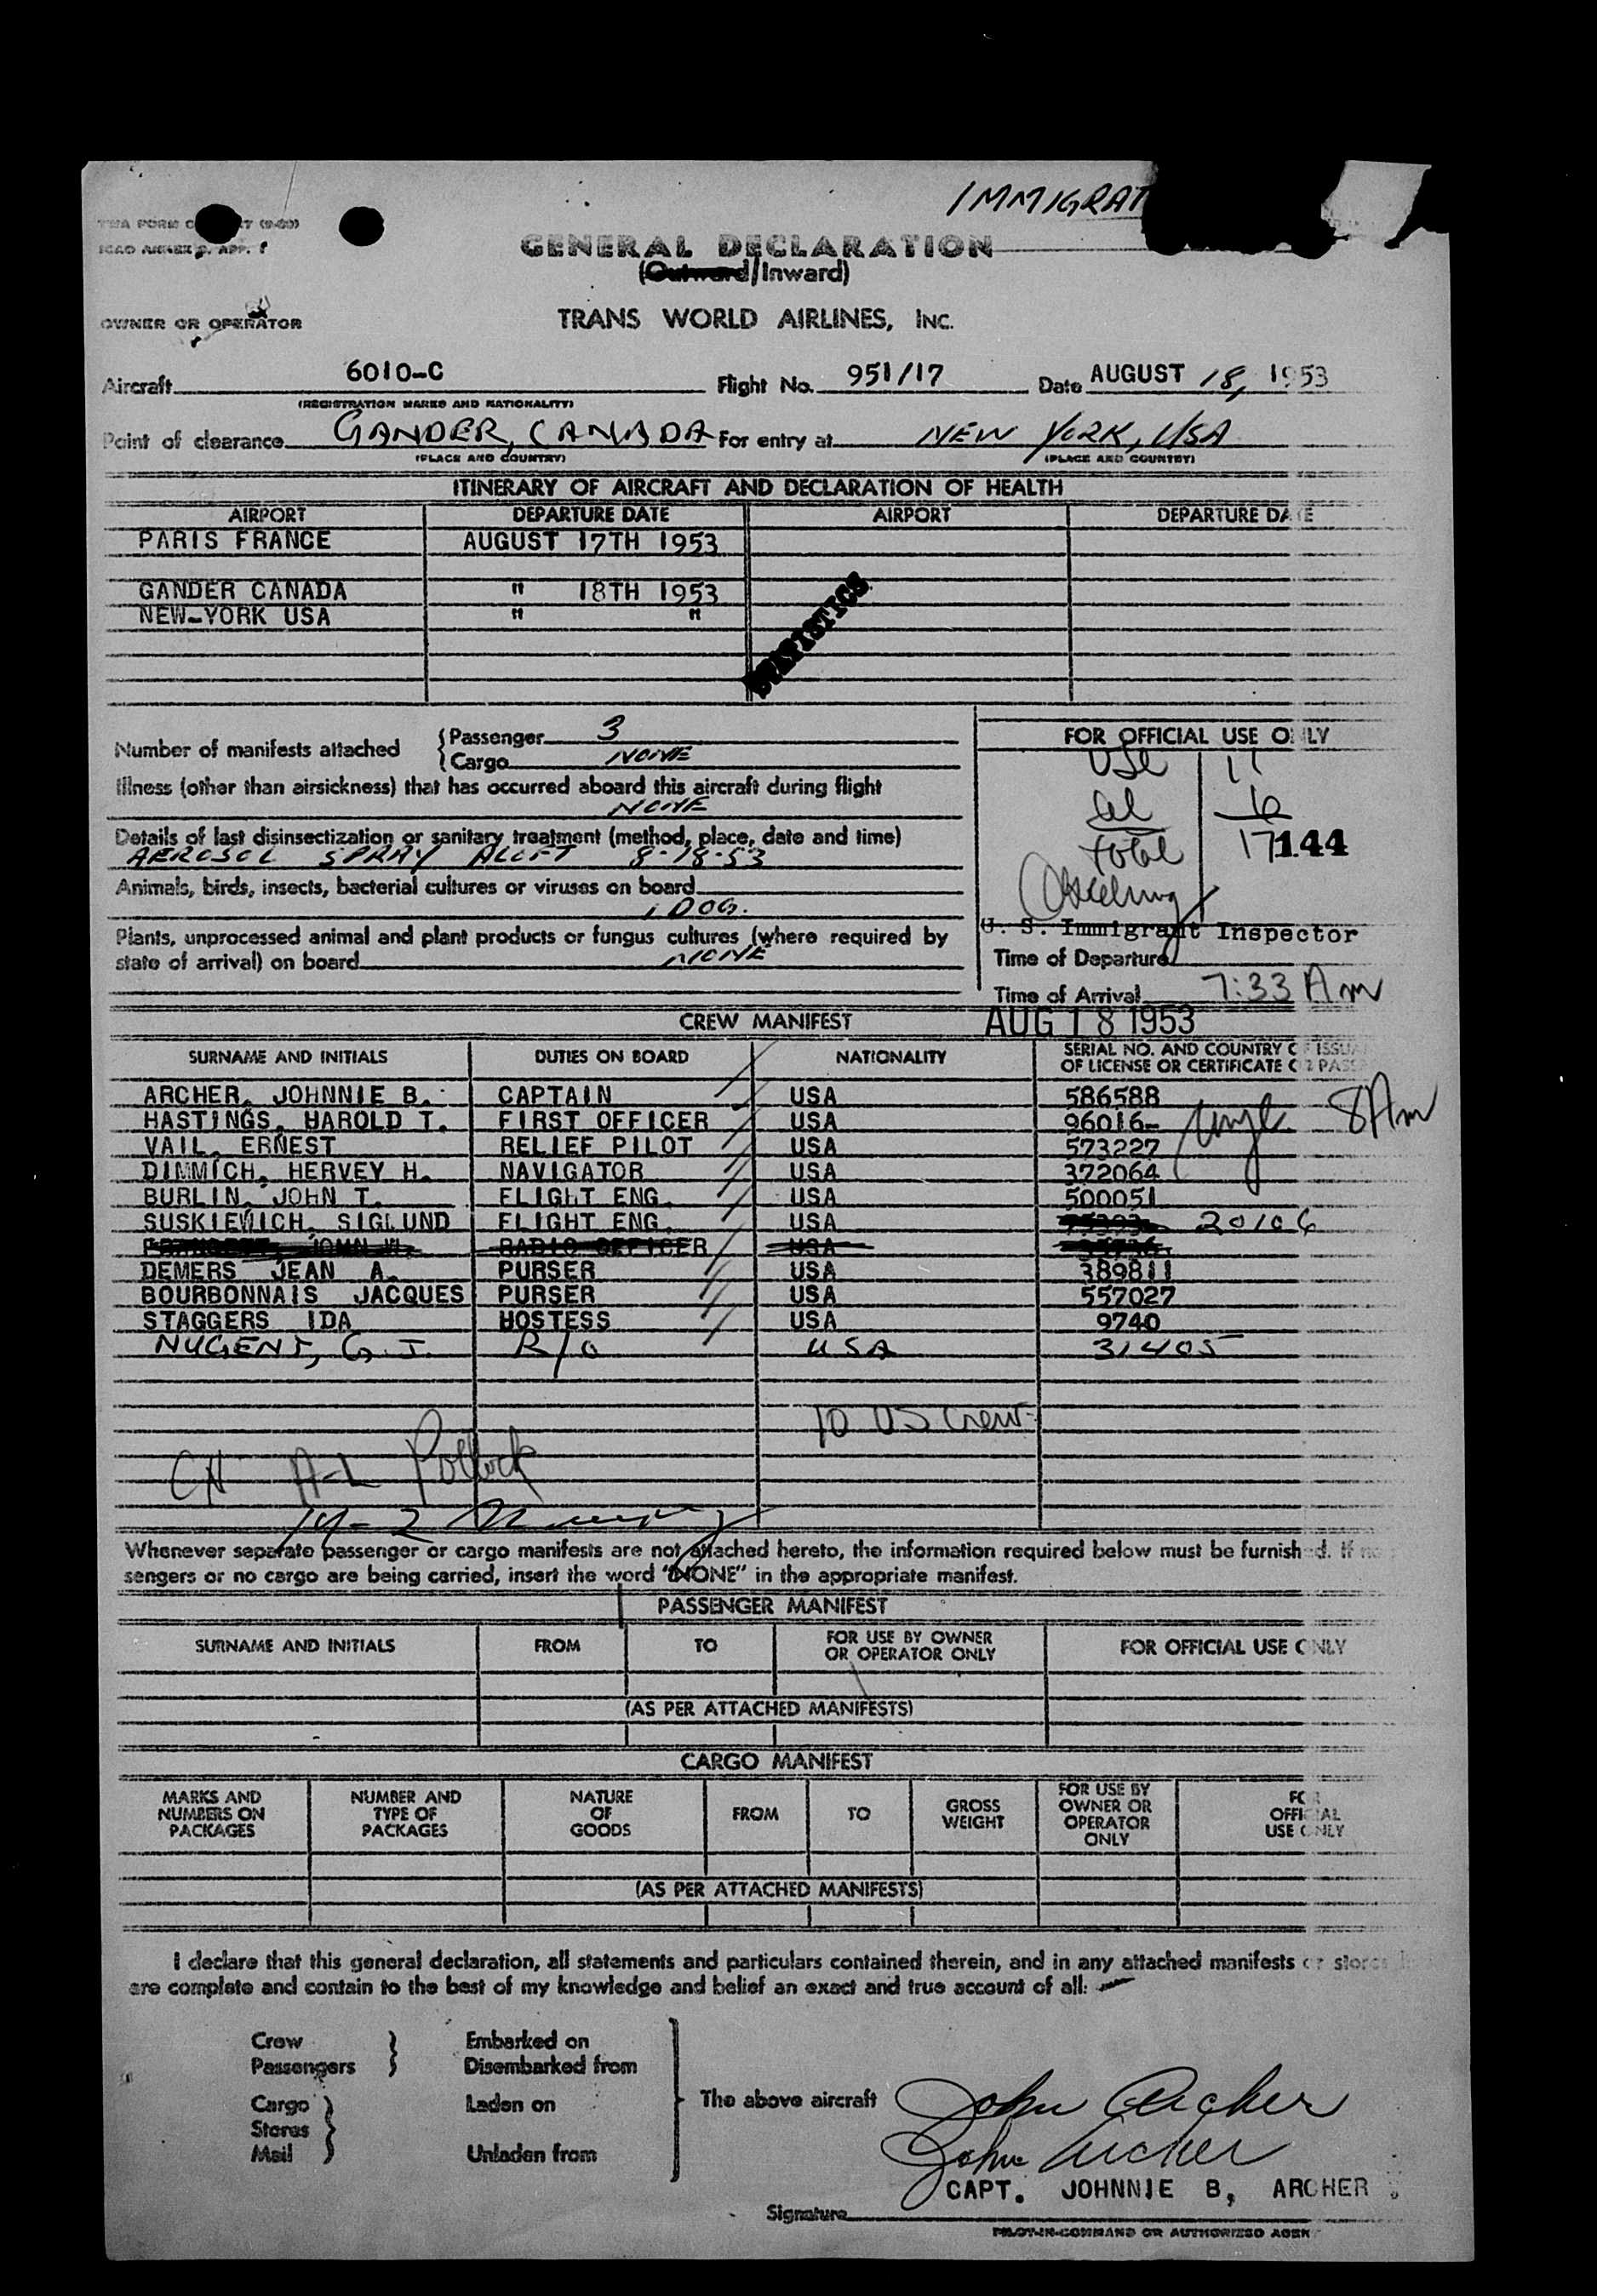 IMMIGRAT
TWA FORM
ICAO ANNEX 9, APP. 1
GENERAL DECLARATION
(Outward/Inward)
OWNER OR OPERATOR TRANS WORLD AIRLINES, INC.
Aircraft 6010-C Flight No. 951/17 Date AUGUST 18, 1953
(REGISTRATION MARKS AND NATIONALITY)
Point of clearance GANDER, CANADA For entry at NEW YORK, USA
(PLACE AND COUNTRY) (PLACE AND COUNTRY)
ITINERARY OF AIRCRAFT AND DECLARATION OF HEALTH
AIRPORT DEPARTURE DATE AIRPORT DEPARTURE DATE
PARIS FRANCE AUGUST 17TH 1953
GANDER CANADA " 18TH 1953
NEW-YORK USA " "
STATISTICS
Number of manifests attached {Passenger 3
{Cargo NONE
Illness (other than airsickness) that has occurred aboard this aircraft during flight
NONE
Details of last disinsectization or sanitary treatment (method, place, date and time)
AEROSOL SPRAY ALOFT 8-18-53
Animals, birds, insects, bacterial cultures or viruses on board
1 DOG.
Plants, unprocessed animal and plant products or fungus cultures (where required by
state of arrival) on board NONE
FOR OFFICIAL USE ONLY
USC 11
al 6
total 17 144
U. S. Immigrant Inspector
Time of Departure
Time of Arrival 7:33 Am
AUG 18 1953
CREW MANIFEST
SURNAME AND INITIALS DUTIES ON BOARD NATIONALITY SERIAL NO. AND COUNTRY OF ISSUA
OF LICENSE OR CERTIFICATE OR PASS
ARCHER, JOHNNIE B. CAPTAIN USA 586588
HASTINGS, HAROLD T. FIRST OFFICER USA 96016- 8Am
VAIL, ERNEST RELIEF PILOT USA 573227
DIMMICH, HERVEY H. NAVIGATOR USA 372064
BURLIN, JOHN T. FLIGHT ENG. USA 500051
SUSKIEWICH, SIGLUND FLIGHT ENG. USA 20106
JOHN W. RADIO OFFICER USA
DEMERS JEAN A. PURSER USA 389811
BOURBONNAIS JACQUES PURSER USA 557027
STAGGERS IDA HOSTESS USA 9740
NUGENT, G. J. R/O USA 31405
10 US Crew
CN A-L Pollock
14-2
Whenever separate passenger or cargo manifests are not attached hereto, the information required below must be furnished. If no
sengers or no cargo are being carried, insert the word "NONE" in the appropriate manifest.
PASSENGER MANIFEST
SURNAME AND INITIALS FROM TO FOR USE BY OWNER OR OPERATOR ONLY FOR OFFICIAL USE ONLY
(AS PER ATTACHED MANIFESTS)
CARGO MANIFEST
MARKS AND NUMBERS ON PACKAGES NUMBER AND TYPE OF PACKAGES NATURE OF GOODS FROM TO GROSS WEIGHT FOR USE BY OWNER OR OPERATOR ONLY FOR OFFICIAL USE ONLY
(AS PER ATTACHED MANIFESTS)
I declare that this general declaration, all statements and particulars contained therein, and in any attached manifests or stores
are complete and contain to the best of my knowledge and belief an exact and true account of all:
Crew } Embarked on
Passengers } Disembarked from
Cargo } Laden on
Stores
Mail } Unladen from
The above aircraft John Archer
John Archer
CAPT. JOHNNIE B, ARCHER
Signature
PILOT-IN-COMMAND OR AUTHORIZED AGEN